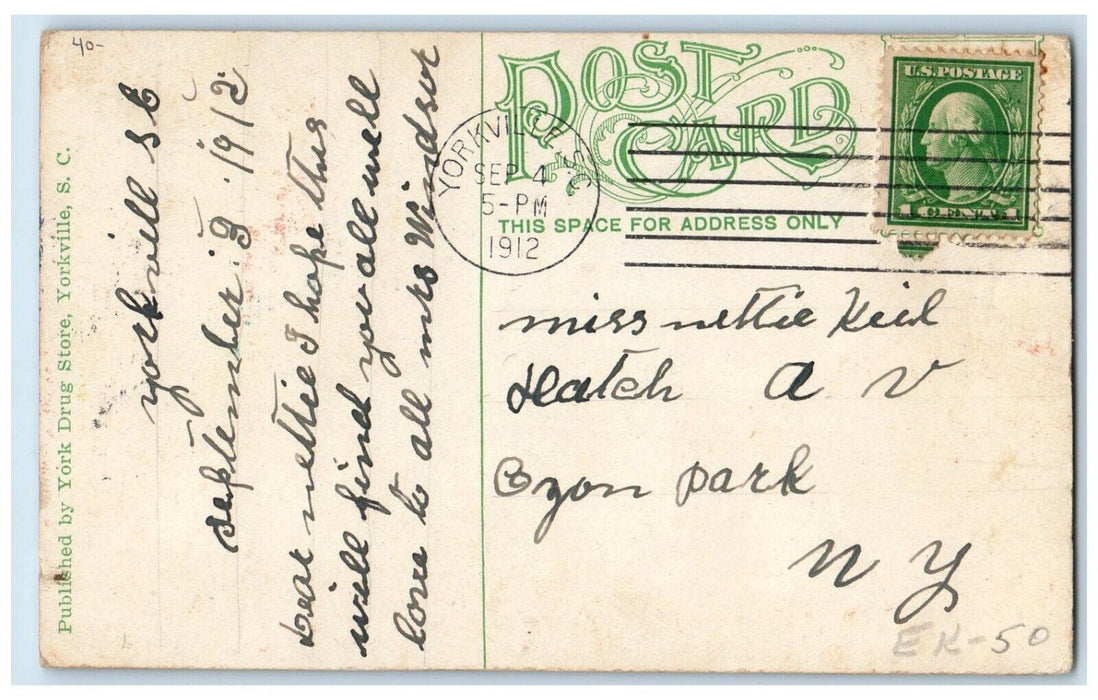 40-
Published by York Drug Store, Yorkville, S. C.
yorkvill S C
september 3 1912
Dear nettie I hope this
will find you all well
love to all mrs Windsor
POST CARD
THIS SPACE FOR ADDRESS ONLY
YORKVILLE, S.C.
SEP 4
5-PM
1912
U.S. POSTAGE
1 CENT 1
miss nettie Keil
Hatch a v
Ozon park
N Y
EK-50